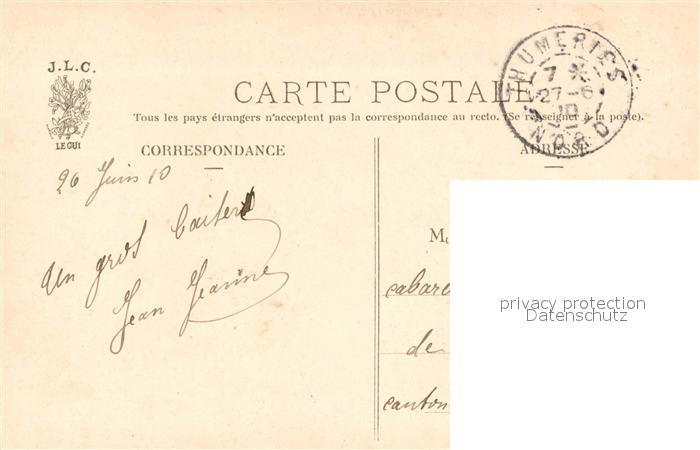 J.L.C.
LE GUI
CARTE POSTALE
Tous les pays étrangers n'acceptent pas la correspondance au recto. (Se renseigner à la poste).
THUMERIES
7
27-6
10
NORD
CORRESPONDANCE
ADRESSE
26 Juin 10
Un gros baiser
Jean Jeanne
M
cabare
de
canton
privacy protection
Datenschutz